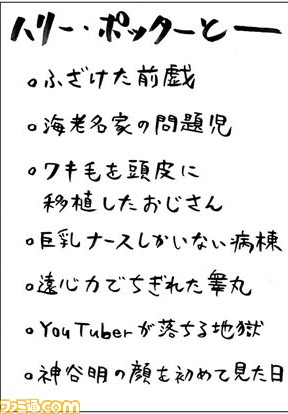 ハリー・ポッターと——
○ふざけた前戯
○海老名家の問題児
○ワキ毛を頭皮に
移植したおじさん
○巨乳ナースしかいない病棟
○遠心力でちぎれた睾丸
○YouTuberが落ちる地獄
○神谷明の顔を初めて見た日
ファミ通.com